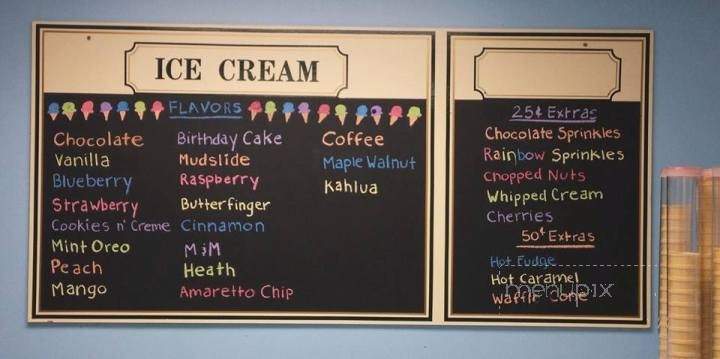 ICE CREAM
FLAVORS
Chocolate
Vanilla
Blueberry
Strawberry
Cookies n' Creme
Mint Oreo
Peach
Mango
Birthday Cake
Mudslide
Raspberry
Butterfinger
Cinnamon
M&M
Heath
Amaretto Chip
Coffee
Maple Walnut
Kahlua
25¢ Extras
Chocolate Sprinkles
Rainbow Sprinkles
Chopped Nuts
Whipped Cream
Cherries
50¢ Extras
Hot Fudge
Hot Caramel
Waffle Cone
menupix